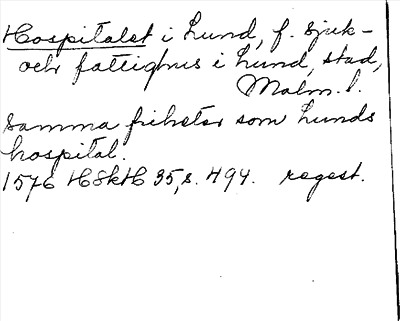 Hospitalet i Lund, f. sjuk-
och fattighus i Lund, stad,
Malm. l.
Samma friheter som Lunds
hospital.
1576 HSkH 35, s. 494. regest.